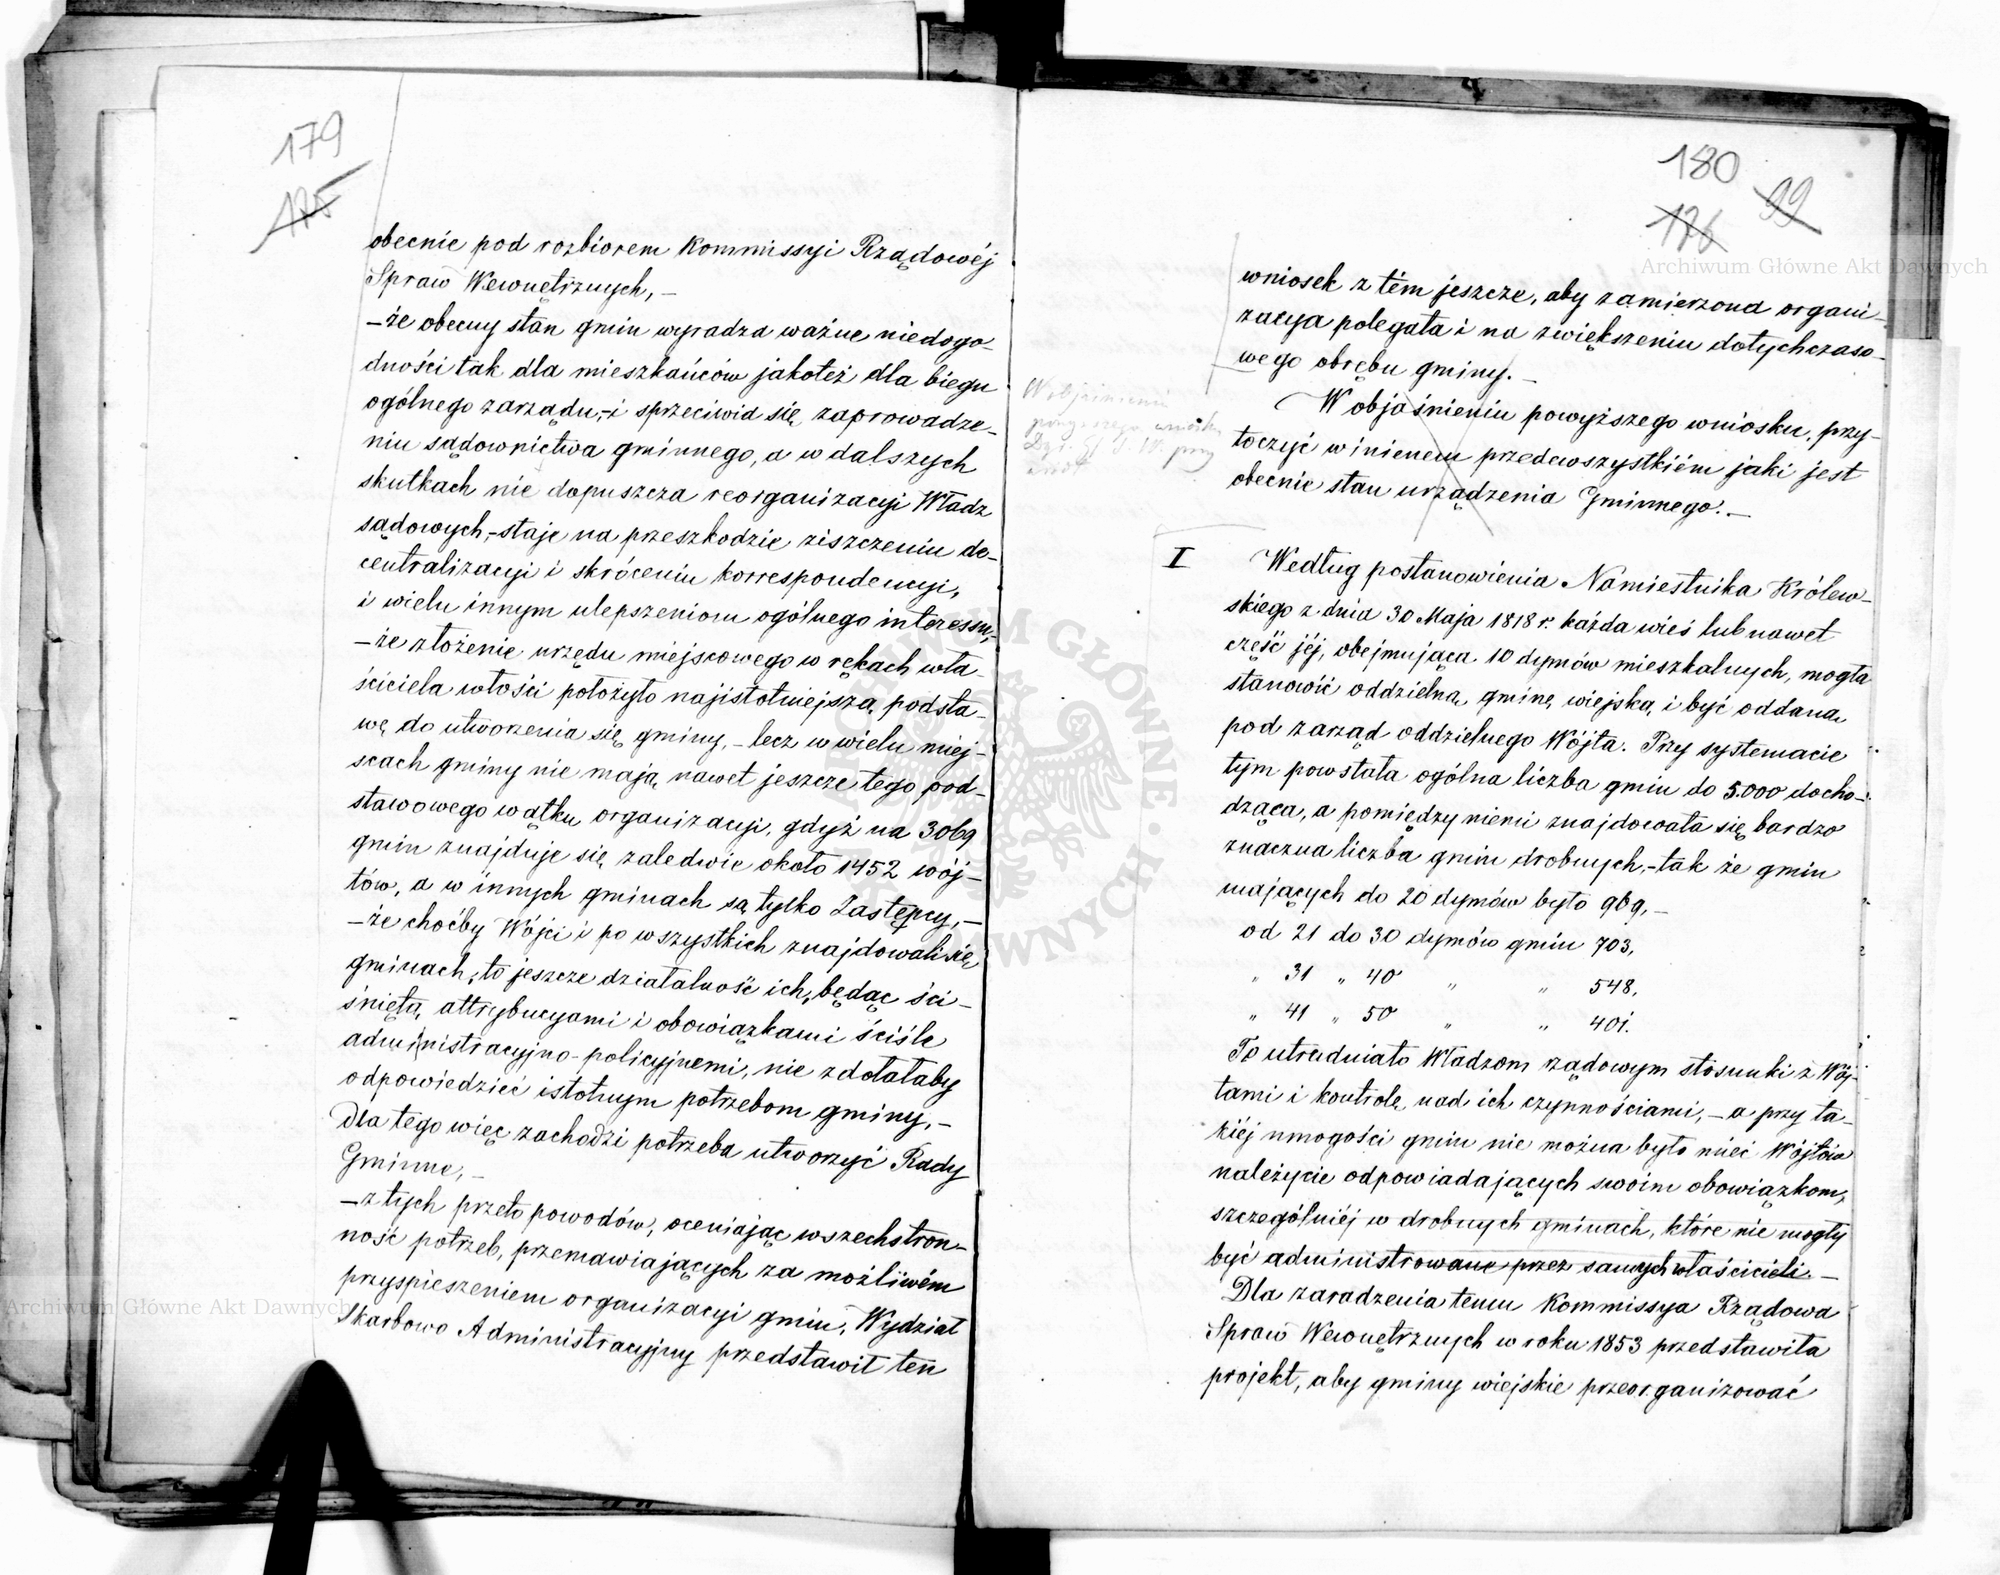 179
175
obecnie pod rozbiorem Kommissyi Rządowéj
Spraw Wewnętrznych, –
– że obecny stan gmin wyradza ważne niedogo-
dności tak dla mieszkańców jakoteż dla biegu
ogólnego zarządu, – i sprzeciwia się zaprowadze-
niu sądownictwa gminnego, a w dalszych
skutkach nie dopuszcza reorganizacyi Władz
sądowych, – staje na przeszkodzie ziszczeniu de-
centralizacyi i skróceniu korrespondencyi,
i wielu innym ulepszeniom ogólnego interessu, –
– że złożenie urzędu miejscowego w rękach wła-
ściciela włości położyło najistotniejszą podsta-
wę do utworzenia się gminy, – lecz w wielu miej-
scach gminy nie mają nawet jeszcze tego pod-
stawowego wątku organizacyi, gdyż na 3069
gmin znajduje się zaledwie około 1452 wój-
tów, a w innych gminach są tylko Zastępcy, –
– że choćby Wójci i po wszystkich znajdowali się
gminach, to jeszcze działalność ich, będąc ści-
śniętą attrybucyami i obowiązkami ściśle
administracyjno-policyjnemi, nie zdołałaby
odpowiedzieć istotnym potrzebom gminy, –
Dla tego więc zachodzi potrzeba utworzyć Rady
Gminne, –
– z tych przeto powodów, oceniając wszechstron-
ność potrzeb, przemawiających za możliwém
przyspieszeniem organizacyi gmin, Wydział
Skarbowo Administracyjny przedstawił ten
180
99
176
wniosek z tém jeszcze, aby zamierzona organi-
zacya polegała i na zwiększeniu dotychczaso-
wego obrębu gminy. –
W objaśnieniu
powyższego wniosku
W objaśnieniu powyższego wniosku, przy-
toczyć winienem przedewszystkiém jaki jest
obecnie stan urządzenia Gminnego. –
I Według postanowienia Namiestnika Królew-
skiego z dnia 30 Maja 1818 r. każda wieś lub nawet
część jéj, obejmująca 10 dymów mieszkalnych, mogła
stanowić oddzielną gminę wiejską i być oddaną
pod zarząd oddzielnego Wójta. Przy systemacie
tym powstała ogólna liczba gmin do 5.000 docho-
dząca, a pomiędzy niemi znajdowała się bardzo
znaczna liczba gmin drobnych, – tak że gmin
mających do 20 dymów było 969, –
od 21 do 30 dymów gmin 703,
" 31 " 40 " " 548,
" 41 " 50 " " 401.
To utrudniało Władzom rządowym stosunki z Wój-
tami i kontrolę nad ich czynnościami, – a przy ta-
kiéj mnogości gmin nie można było mieć Wójtów
należycie odpowiadających swoim obowiązkom,
szczególniéj w drobnych gminach, które nie mogły
być administrowane przez samych właścicieli. –
Dla zaradzenia temu Kommissya Rządowa
Spraw Wewnętrznych w roku 1853 przedstawiła
projekt, aby gminy wiejskie przeorganizować
Archiwum Główne Akt Dawnych
Archiwum Główne Akt Dawnych
ARCHIWUM GŁÓWNE AKT DAWNYCH